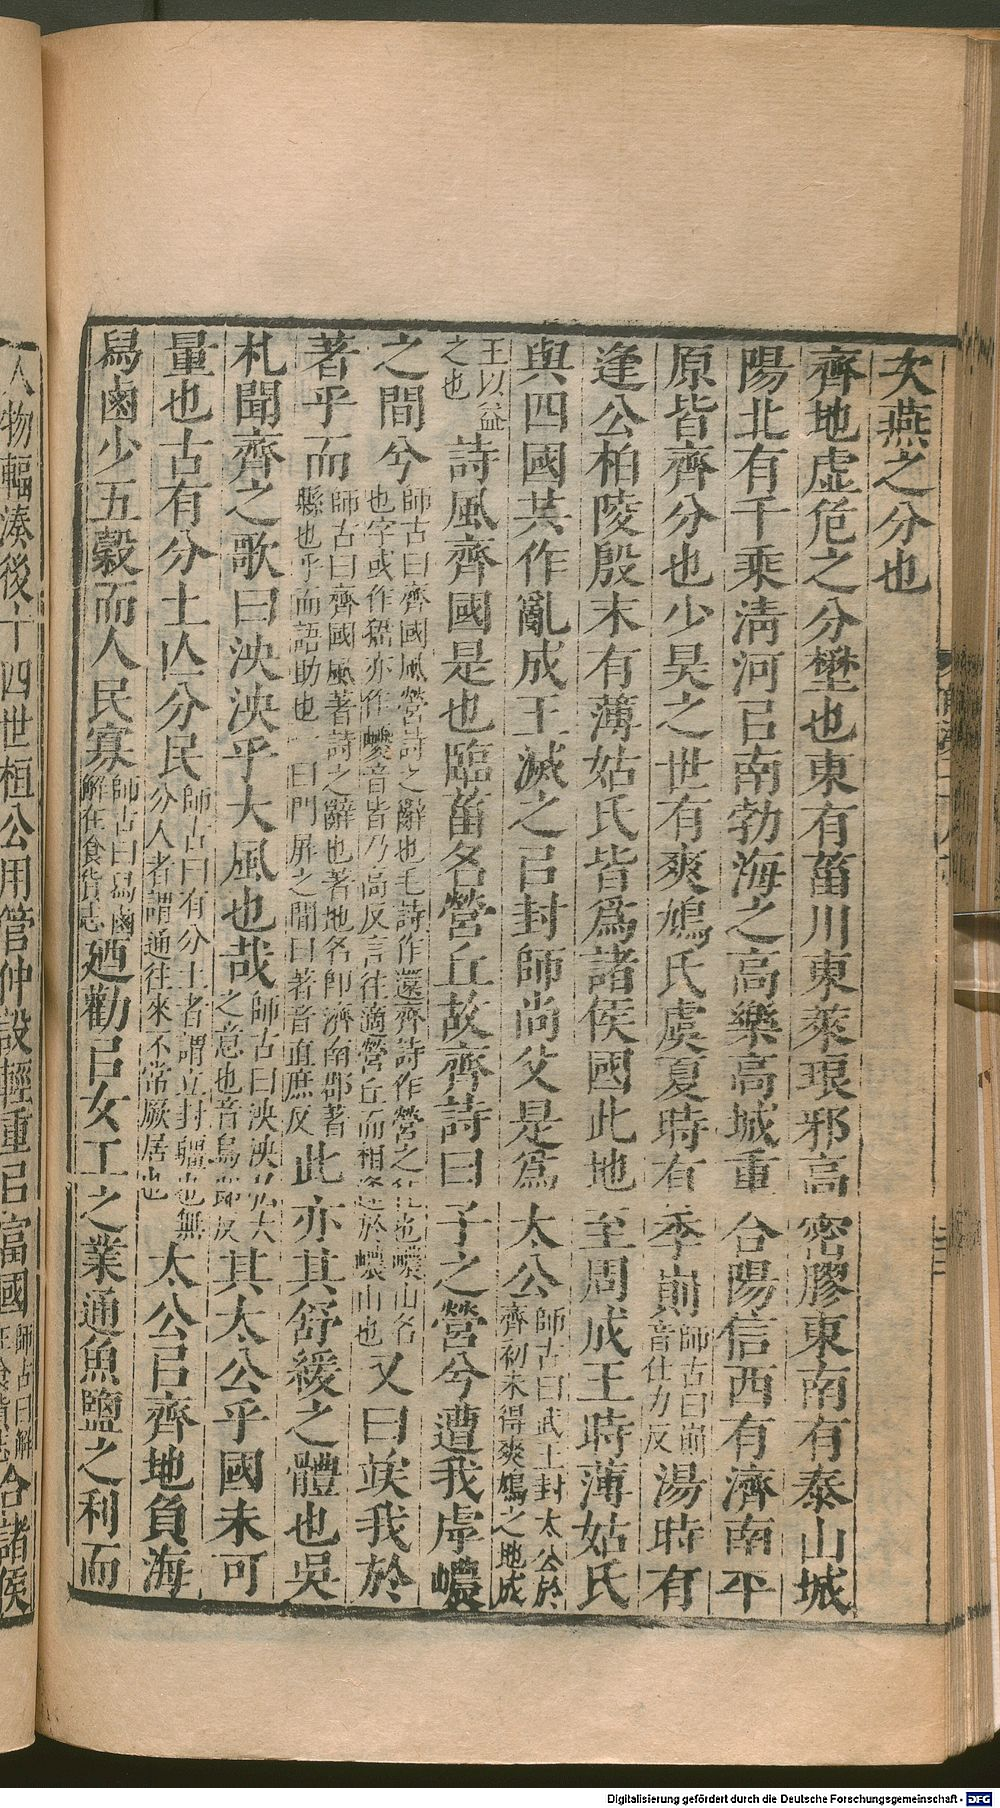 次燕之分也
齊地虛危之分壄也東有菑川東萊琅邪高密膠東南有泰山城
陽北有千乘淸河㠯南勃海之高樂高城重合陽信西有濟南平
原皆齊分也少昊之世有爽鳩氏虞夏時有季崱師古曰崱音仕力反湯時有
逢公柏陵殷末有薄姑氏皆爲諸侯國此地至周成王時薄姑氏
與四國共作亂成王滅之㠯封師尚父是爲太公師古曰武王封太公於齊初未得爽鳩之地成
王以益之也詩風齊國是也臨菑名營丘故齊詩曰子之營兮遭我虖嶩
之間兮師古曰齊國風營詩之辭也毛詩作還齊詩作營之往也嶩山名也字或作猺亦作巎音皆乃高反言往適營丘而相逢於嶩山也又曰竢我於
著乎而師古曰齊國風著詩之辭也著地名卽濟南郡著縣也乎而語助也一曰門屛之閒曰著音直庶反此亦其舒緩之體也吳
札聞齊之歌曰泱泱乎大風也哉師古曰泱泱弘大之意也音烏郎反其太公乎國未可
量也古有分土亾分民師古曰有分土者謂立封疆也無分人者謂通往來不常厥居也太公㠯齊地負海
舄鹵少五糓而人民寡師古曰舄鹵解在食貨志廼勸㠯女工之業通魚鹽之利而
人物輻湊後十四世桓公用管仲設輕重㠯富國合諸侯
Digitalisierung gefördert durch die Deutsche Forschungsgemeinschaft - DFG